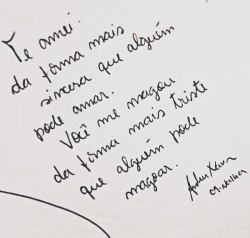 Te amei.
da forma mais
sincera que alguém
pode amar.
Você me magou
da forma mais triste
que alguém pode
magoar.